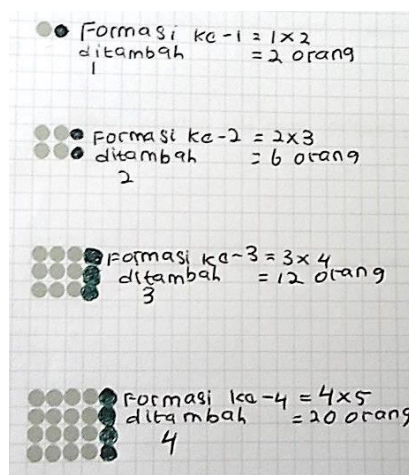 Formasi ke-1 = 1x2
ditambah = 2 orang
1
Formasi ke-2 = 2x3
ditambah = 6 orang
2
Formasi ke-3 = 3x4
ditambah = 12 orang
3
Formasi ke-4 = 4x5
ditambah = 20 orang
4